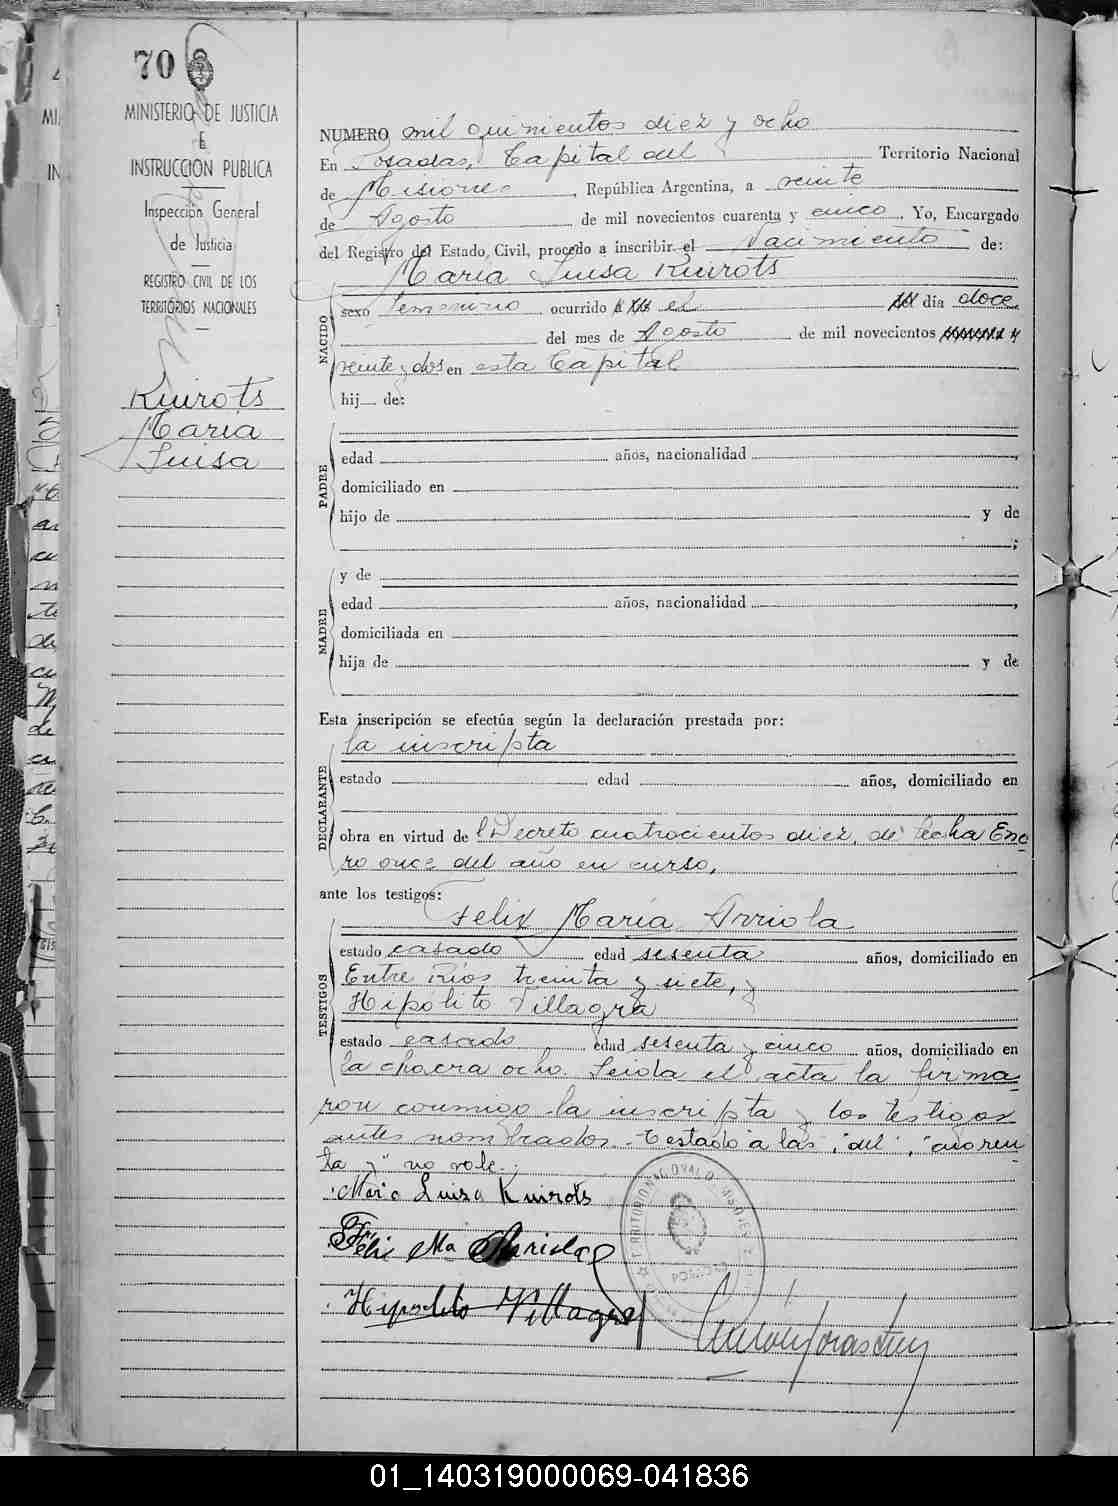 70
MINISTERIO DE JUSTICIA
E
INSTRUCCION PUBLICA
Inspección General
de Justicia
REGISTRO CIVIL DE LOS
TERRITORIOS NACIONALES
Kuirots
María
Luisa
NUMERO mil quinientos diez y ocho
En Posadas, Capital del Territorio Nacional
de Misiones, República Argentina, a veinte
de Agosto de mil novecientos cuarenta y cinco. Yo, Encargado
del Registro del Estado Civil, procedo a inscribir el Nacimiento de:
María Luisa Kuirots
NACIDO
sexo femenino ocurrido el día doce
del mes de Agosto de mil novecientos
veinte y dos en esta Capital
hij de:
PADRE
edad años, nacionalidad ,
domiciliado en
hijo de y de
;
MADRE
y de
edad años, nacionalidad ,
domiciliada en
hija de y de
Esta inscripción se efectúa según la declaración prestada por:
DECLARANTE
la inscripta
estado edad años, domiciliado en
obra en virtud del Decreto cuatrocientos diez, de fecha Ene-
ro once del año en curso,
ante los testigos:
TESTIGOS
Felix María Arriola
estado casado edad sesenta años, domiciliado en
Entre Rios treinta y siete, y
Hipolito Villagra
estado casado edad sesenta y cinco años, domiciliado en
la chacra ocho. Leida el acta la firma-
ron conmigo la inscripta y los testigos
antes nombrados. Testado "a las", "del", "cuaren
ta y" no vale.
Maria Luisa Kuirots
Félix Ma Arriola
Hipolito Villagra
01_140319000069-041836